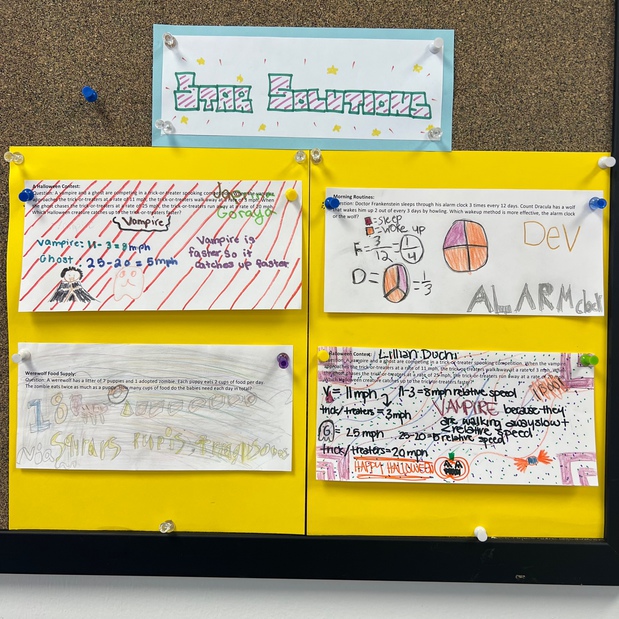 STAR SOLUTIONS
A Halloween Contest:
Question: A vampire and a ghost are competing in a trick-or-treater spooking
approaches the trick-or-treaters at a rate of 11 mph, the trick-or-treaters walk away at a rate of 3 mph. When
the ghost chases the trick-or-treaters at a rate of 25 mph, the trick-or-treaters run away at a rate of 20 mph.
Which Halloween creature catches up to the trick-or-treaters faster?
Goraya
Vampire
vampire: 11-3=8mph
Ghost: 25-20=5mph
Vampire is
faster, so it
catches up faster
Morning Routines:
Question: Doctor Frankenstein sleeps through his alarm clock 3 times every 12 days. Count Dracula has a wolf
that wakes him up 2 out of every 3 days by howling. Which wakeup method is more effective, the alarm clock
or the wolf?
=sleep
=woke up
F=3/12=1/4
D= =1/3
Dev
ALARM clock
Werewolf Food Supply:
Question: A werewolf has a litter of 7 puppies and 1 adopted zombie. Each puppy eats 2 cups of food per day.
The zombie eats twice as much as a puppy. How many cups of food do the babies need each day in total?
18
Halloween Contest:
Lillian Duchi
Question: A vampire and a ghost are competing in a trick-or-treater spooking contest. When the vampire
approaches the trick-or-treaters at a rate of 11 mph, the trick-or-treaters walk away at a rate of 3 mph. When
the ghost chases the trick-or-treaters at a rate of 25 mph, the trick-or-treaters run away at a rate of 20 mph.
Which Halloween creature catches up to the trick-or-treaters faster?
V = 11mph
11-3=8mph relative speed
trick/treaters = 3mph
VAMPIRE because they
are walking away slow +
relative speed
G = 25 mph
25-20=5 relative speed
trick/treaters=20mph
HAPPY HALLOWEEN